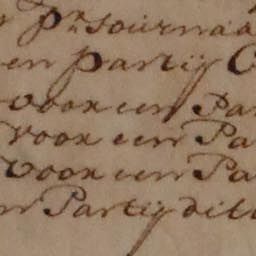 Pr Journaa
en partij
voor een Par
voor een Pa
voor een Pa
en Partij dito